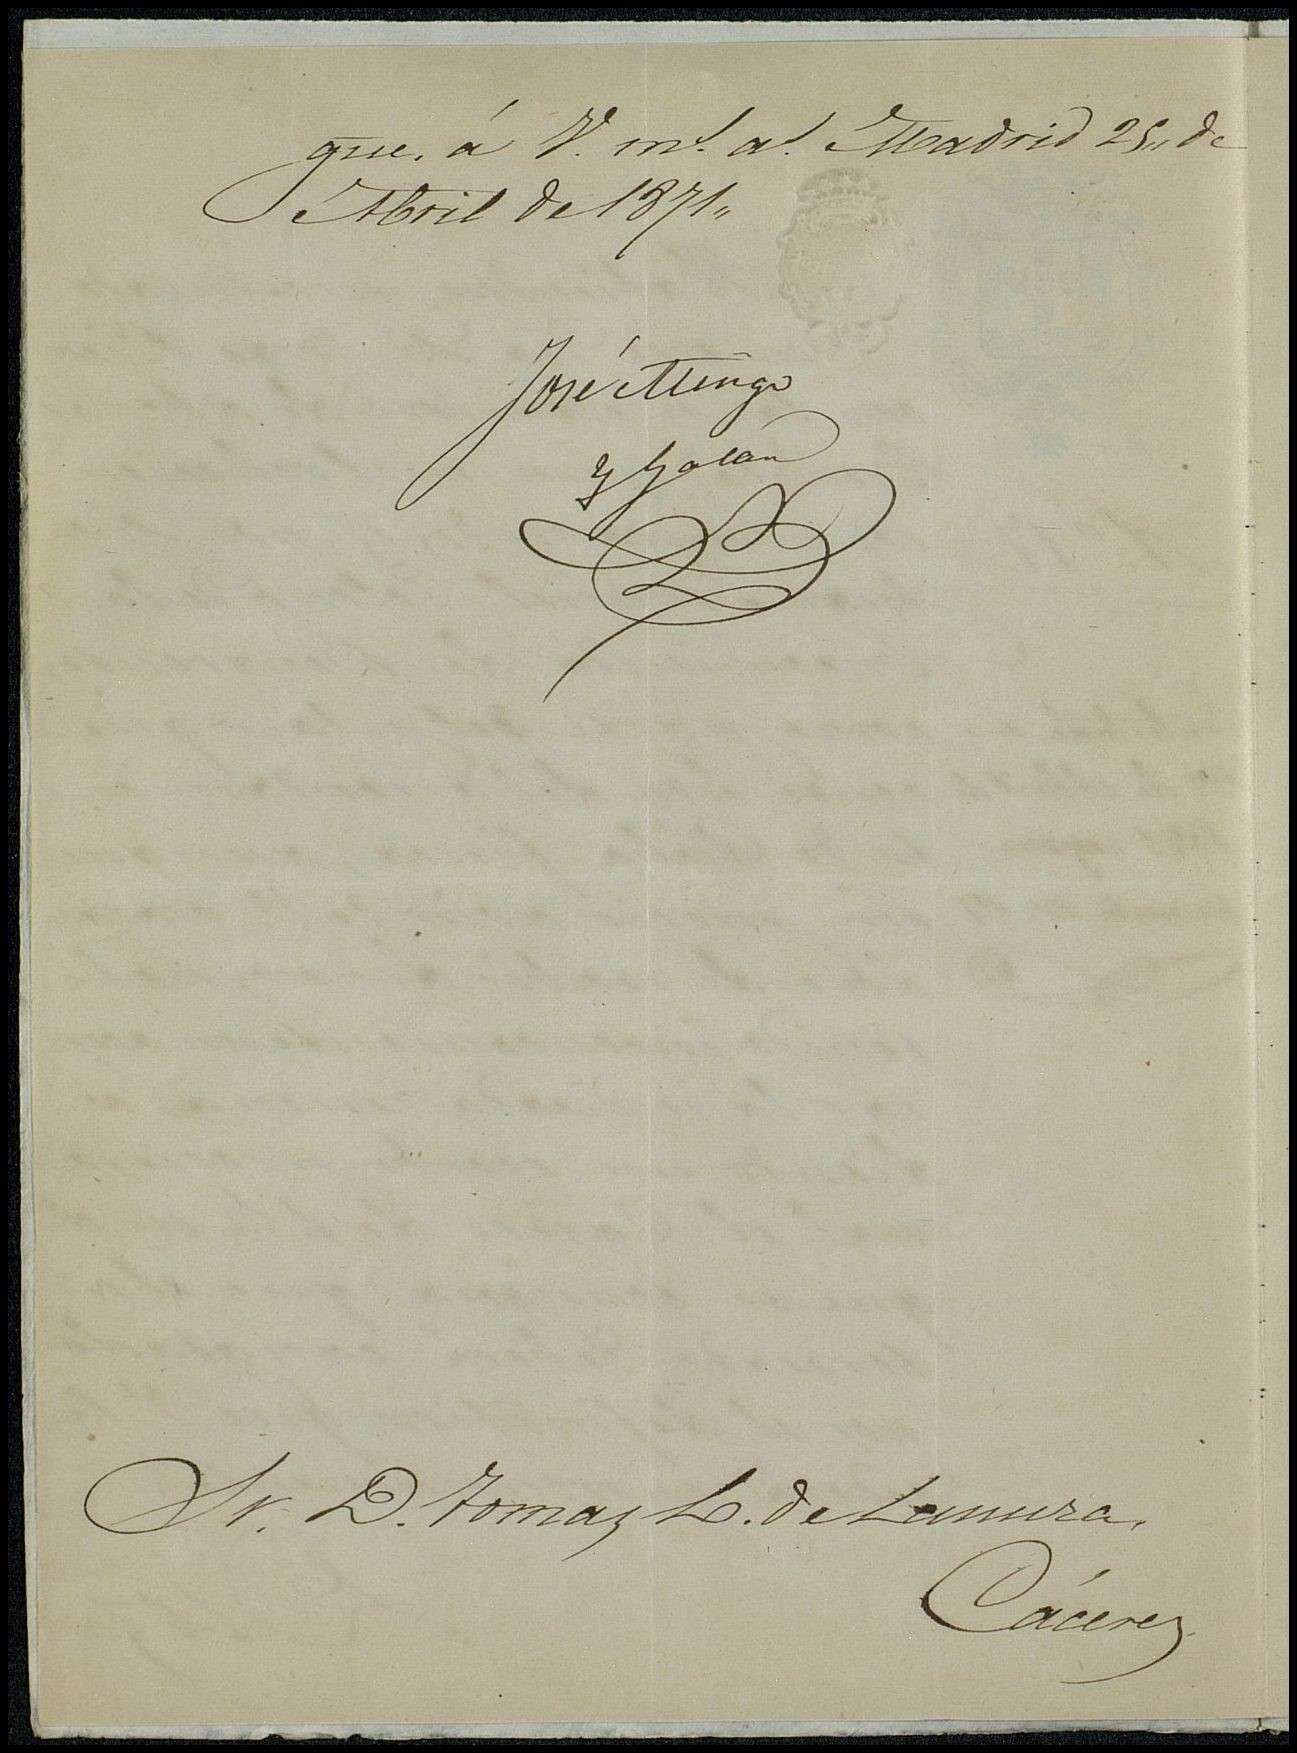 gue. á V. ms. as. Madrid 25,, de
Abril de 1871,,
José Mingo
y Galan
Sr. D. Tomaz L. de Lanuza.
Cácerez